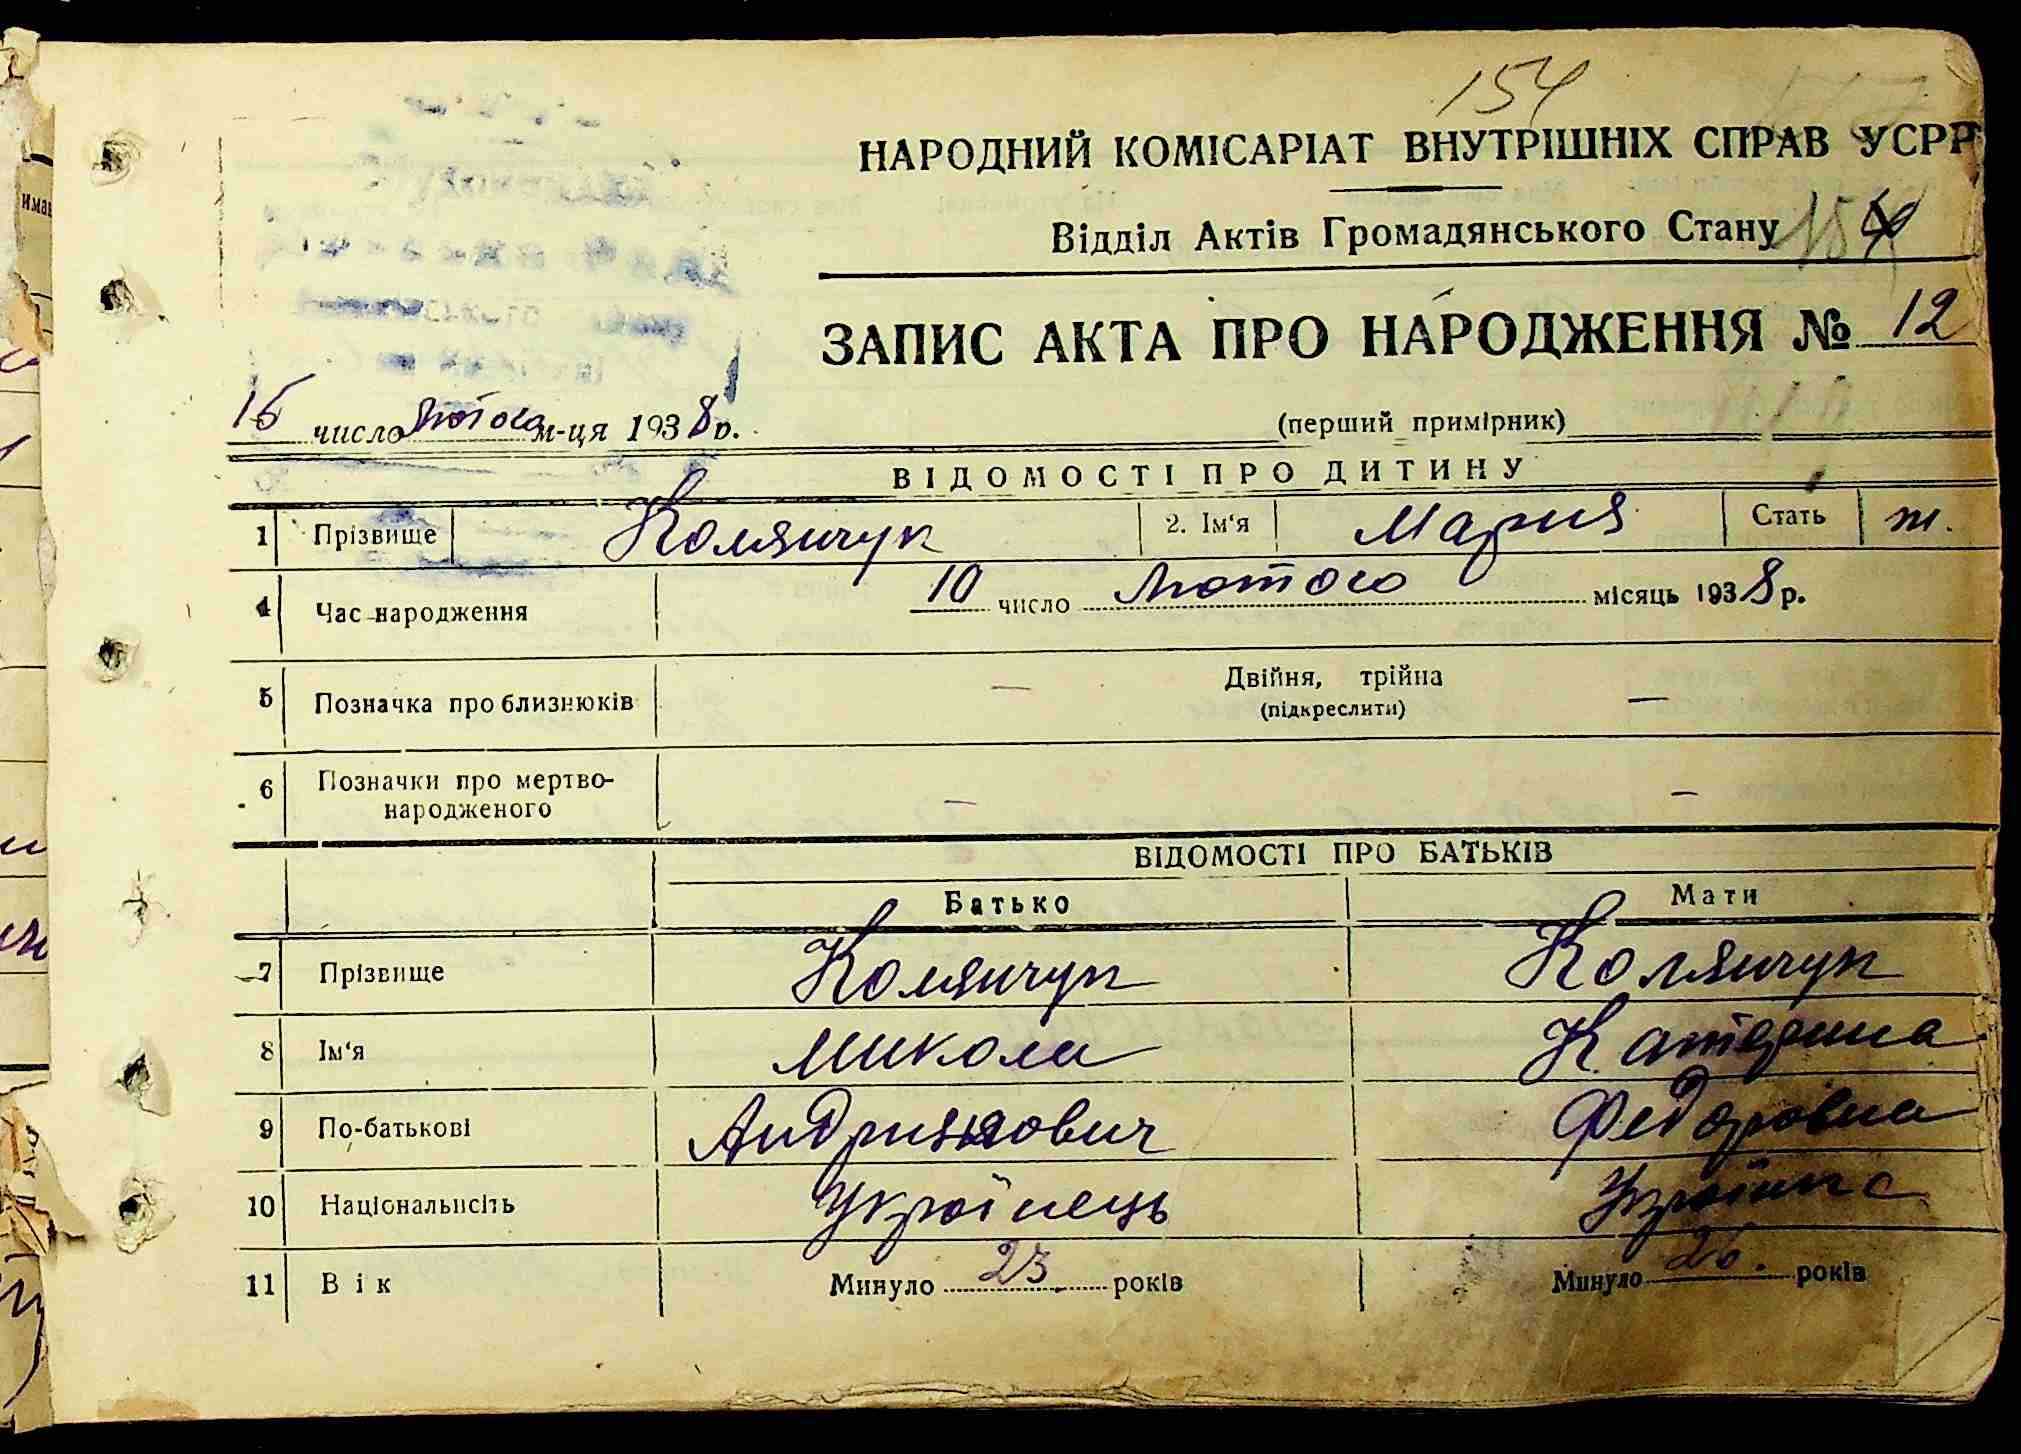 154
НАРОДНИЙ КОМІСАРІАТ ВНУТРІШНІХ СПРАВ УСРР
Відділ Актів Громадянського Стану
ЗАПИС АКТА ПРО НАРОДЖЕННЯ № 12
15 число лютого м-ця 1938 р.
(перший примірник)
ВІДОМОСТІ ПРО ДИТИНУ
1 Прізвище Колянчук 2. Ім'я Мария Стать ж.
4 Час народження 10 число лютого місяць 1938 р.
5 Позначка про близнюків — Двійня, трійна —
(підкреслити)
6 Позначки про мертво-
народженого — —
ВІДОМОСТІ ПРО БАТЬКІВ
Батько Мати
7 Прізвище Колянчук Колянчук
8 Ім'я Микола Катерина
9 По-батькові Андриянович Федоровна
10 Національність Українець Українка
11 Вік Минуло 23 років Минуло 26. років